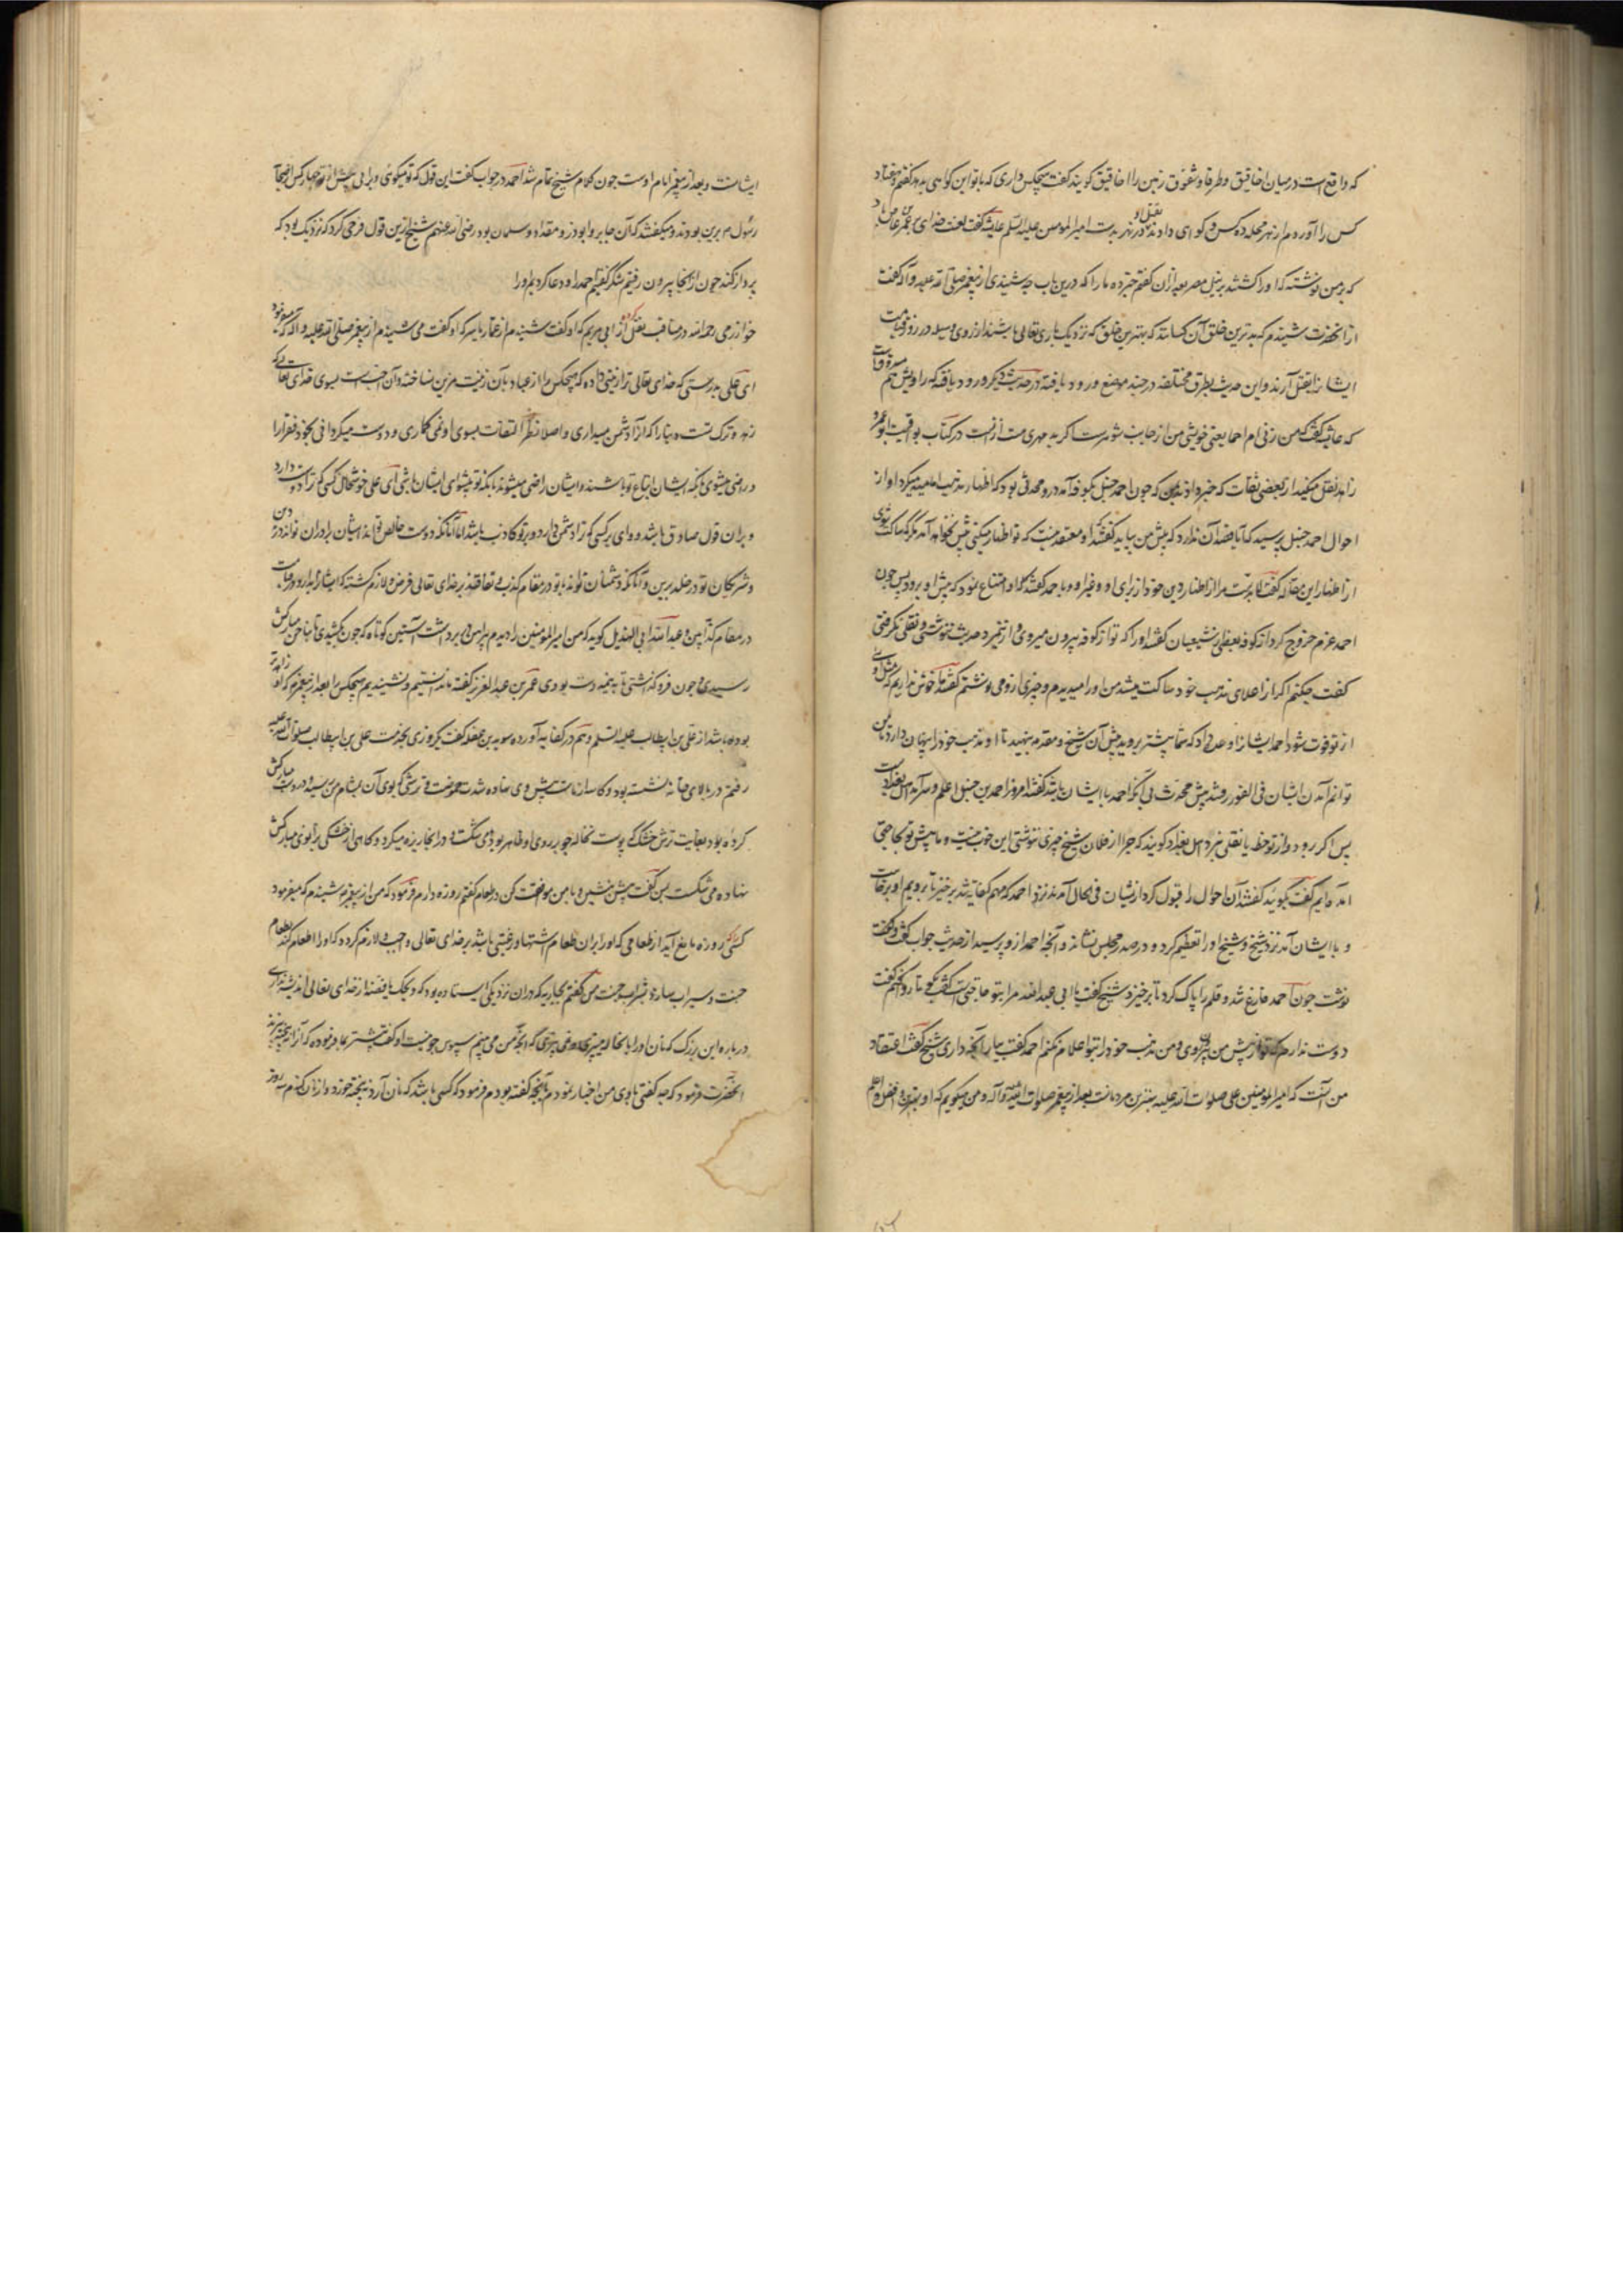 که واقع است در میان اخاقیق و طرفا و شقوق زمین را اخاقیق گویند گفت هیچکس داری که با تو این گواهی بدهد گفتم هفتاد
کس را آوردم از هر محله ده کس و گواهی دادند بقتل او در نهر بدست امیر المومنین علیه السلم عایشه گفت لعنت خدای بر عمرو عاص باد
که بمن نوشته که او را کشتند بر نیل مصر بعد ازان گفتم خبر ده ما را که درین باب چه شنیدی از پیغمبر صلی الله علیه و آله گفت
از آنحضرت شنیدم که بدترین خلق آن کسانند که بهترین خلق که نزدیک باری تعالی باشند از روی وسیله در روز قیامت
ایشانرا بقتل آرند و این حدیث بطرق مختلفه در چند موضع ورود یافته در حدیث دیگر ورود یافته که راویش هم مسروقست
که عایشه گفت که من زنی ام احما یعنی خویشی من از جانب شوهرست در کتاب یواقیت ابو عمرو
زاهد نقل میکند از بعضی ثقات که خبر دادند که چون احمد حنبل بکوفه آمد درو محدثی بود که اظهار مذهب امامیه میکرد او از
احوال احمد حنبل پرسید که آیا قصد آن ندارد که پیش من بیاید گفتند او معتقد نیست که تو اظهار میکنی پیش تو نخواهد آمد مگر که ساکت شوی
از اظهار این مقاله گفت لابدست مرا از اظهار دین خود از برای او و غیر او و با احمد گفتند او امتناع نمود که پیش او برود پس چون
احمد عزم خروج کرد از کوفه بعضی شیعیان گفتند او را که تو از کوفه بیرون میروی و ازین مرد حدیث ننوشتی و نقلی نگرفتی
گفت چکنم اگر از اعلای مذهب خود ساکت میشد من او را میدیدم و چیزی ازو می نوشتم گفتند ما خوش نداریم که مثل اوئی
از تو فوت شود احمد ایشانرا وعده داد که شما پیشتر بروید پیش آن شیخ و مقدمه بنهید تا او مذهب خود را پنهان دارد تا من
توانم آمدن ایشان فی الفور رفتند پیش محدث بی آنکه احمد با ایشان باشد گفتند امروز احمد بن حنبل اعلم و سرآمد اهل بغدادست
پس اگر رود و از تو خط یا نقلی نبرد اهل بغداد گویند که چرا از فلان شیخ چیزی ننوشتی این خوب نیست و ما پیش تو بحاجتی
آمده ایم گفت بگوئید گفتند آن احوال را قبول کرد از ایشان فی الحال آمدند نزد احمد که مهم کفایت شد برخیز تا برویم او برخاست
و با ایشان آمد نزد شیخ و شیخ او را تعظیم کرد و در صدر مجلس نشاند و آنچه احمد ازو پرسید از حدیث جواب گفت
نوشت چون احمد فارغ شد و قلم را پاک کرد تا برخیزد شیخ گفت یا ابی عبدالله مرا بتو حاجتی است گفت بگو تا روا کنم گفت
دوست ندارم که تو از پیش من بیرون روی و من مذهب خود را بتو اعلام نکنم احمد گفت بیار آنچه داری شیخ گفت اعتقاد
من آنست که امیر المومنین علی صلوات الله علیه بهترین مردمانست بعد از پیغمبر صلوات الله علیه و آله و من میگویم که او بهتر و افضل و اعلم
ایشانست و بعد از پیغمبر امام اوست چون کلام شیخ تمام شد احمد در جواب گفت این قول که تو میگوئی ... چهار کس از اصحاب
رسول هم برین بودند و میگفتند که آن جابر و ابوذر و مقداد و سلمان بود رضی الله عنهم شیخ ازین قول فرحی کرد که نزدیک بود که
پرواز کند چون از آنجا بیرون رفتیم شکر گفتیم احمد را و دعا کردیم او را
خوارزمی رحمه الله در مناقب نقل کرده از ابی مریم که او گفت شنیدم از عمار یاسر که او گفت می شنیدم از پیغمبر صلی الله علیه و آله که میفرمود
ای علی بدرستی که خدای تعالی ترا زینتی داده که هیچکس را از عباد بآن زینت مزین نساخته و آن احب است بسوی خدای تعالی که
زهد و ترک تست دنیا را که او را دشمن میداری و اصلا نظر التفات بسوی او نمی گماری و دوست میگردانی بخود فقرا را
و راضی میشوی بآنکه ایشان اتباع تو باشند و ایشان راضی میشوند بآنکه تو پیشوای ایشان باشی ای علی خوشحال کسی که ترا دوست دارد
و بران قول صادق باشد و وای بر کسی که ترا دشمن دارد و برتو کاذب باشد اما آنانکه دوست خالص تواند ایشان برادران تواند در دین
و شریکان تو در خلد برین و آنانکه دشمنان تواند با تو در مقام کذب و نفاقند بر خدای تعالی فرض و لازم گشته که ایشانرا بدارد در قیامت
در مقام کذابین و عبد الله ابی الهذیل گوید که من امیر المومنین را دیدم پیراهن در بر داشت آستین کوتاه که چون بکشیدی تا ناخن مبارکش
رسیدی و چون فرو گذاشتی تا به نیمه دست بودی عمر بن عبد العزیز گفته ما ندانستیم و نشنیدیم هیچکس را بعد از پیغمبر که او زاهدتر
بوده باشد از علی بن ابیطالب علیه السلم و هم در کفایه آورده سوید بن غفله گفت یکروزی بخدمت علی بن ابیطالب صلوات الله علیه
رفتم در بالای خانه نشسته بود و کاسه از ماست پیش وی نهاده شدت حموضت و ترشی که بوی آن بمشام من رسید و در دست مبارکش
گرده بود بغایت ترش خشک که پوست نخاله جو بر روی او ظاهر بود می شکست و در آنجا ریزه میکرد و گاهی از خشکی بزانوی مبارکش
نهاده می شکست پس گفت پیش نشین و با من موافقت کن در طعام گفتم روزه دارم فرمود که من از پیغمبر شنیدم که میفرمود
کسی را که روزه مانع آید از طعامی که او را بران طعام اشتها و رغبتی باشد بر خدای تعالی واجب و لازم گردد که او را اطعام کند بطعام
جنت و سیراب سازد بشراب جنت من گفتم بجاریه که دران نزدیکی ایستاده بود که ویحک یا فضه از خدای تعالی اندیشه نداری
درباره این بزرگ که نان او را با نخاله میپزی و نمی بیزی که آنچه من می بینم سبوس جو نیست او گفت پیشتر بما فرموده که آرد نبیخته بپزند
آنحضرت فرمود که چه گفتی با وی من اخبار نمودم بآنچه گفته بودم فرمود که کسی باشد که نان آرد نبیخته خورد و از نان گندم سه روز